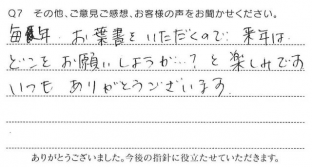 Q7 その他、ご意見ご感想、お客様の声をお聞かせください。
毎年、お葉書をいただくので 来年は
どこをお願いしようか…？と楽しみです
いつも ありがとうございます。
ありがとうございました。今後の指針に役立たせていただきます。